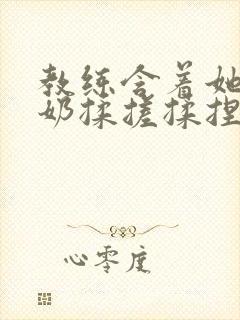 教练含着她
奶揉搓揉捏
心零度